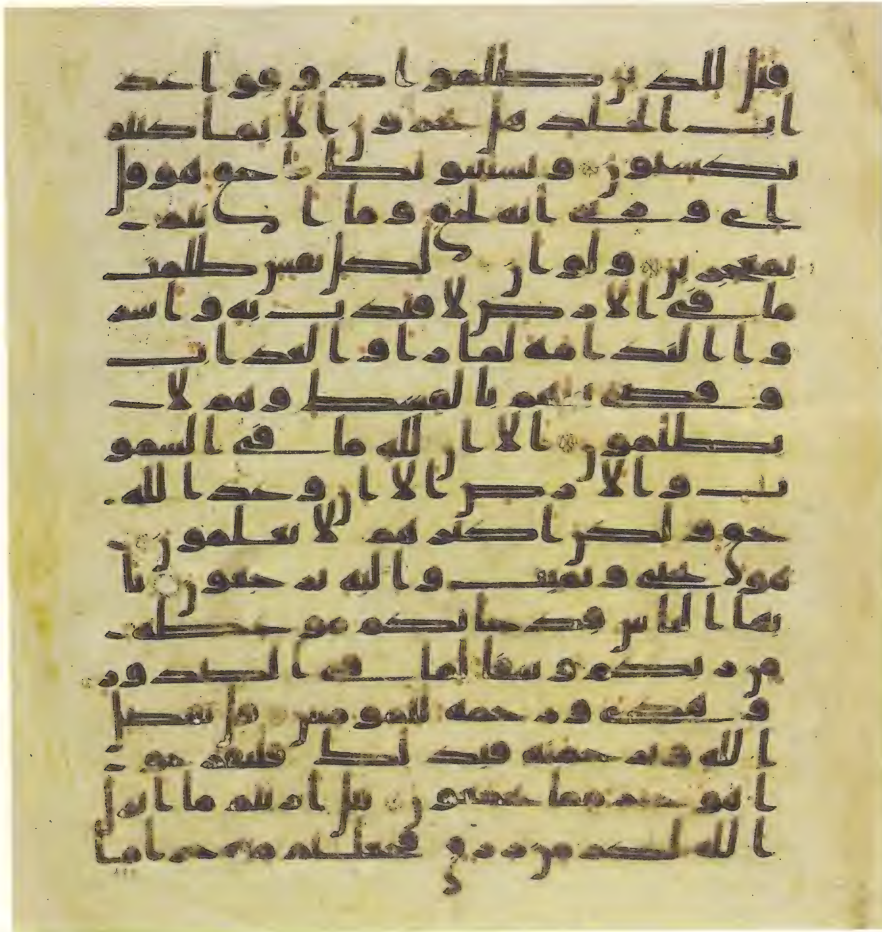 قيل للذين ظلموا ذوقوا عذ
اب الخلد هل تجزون الا بما كنتم
تكسبون ويستنبونك احق هو قل
اي وربي انه لحق وما انتم
بمعجزين ولو ان لكل نفس ظلمت
ما في الارض لافتدت به واسر
وا الندامة لما راوا العذاب
وقضي بينهم بالقسط وهم لا
يظلمون الا ان لله ما في السمو
ت والارض الا ان وعد الله
حق ولكن اكثرهم لا يعلمون
هو يحيي ويميت واليه ترجعون يا
يها الناس قد جاتكم موعظة
من ربكم وشفا لما في الصدور
وهدى ورحمة للمومنين قل بفضل
الله وبرحمته فبذلك فليفرحو
ا هو خير مما يجمعون قل اريتم ما انزل
الله لكم من رزق فجعلتم منه حراما